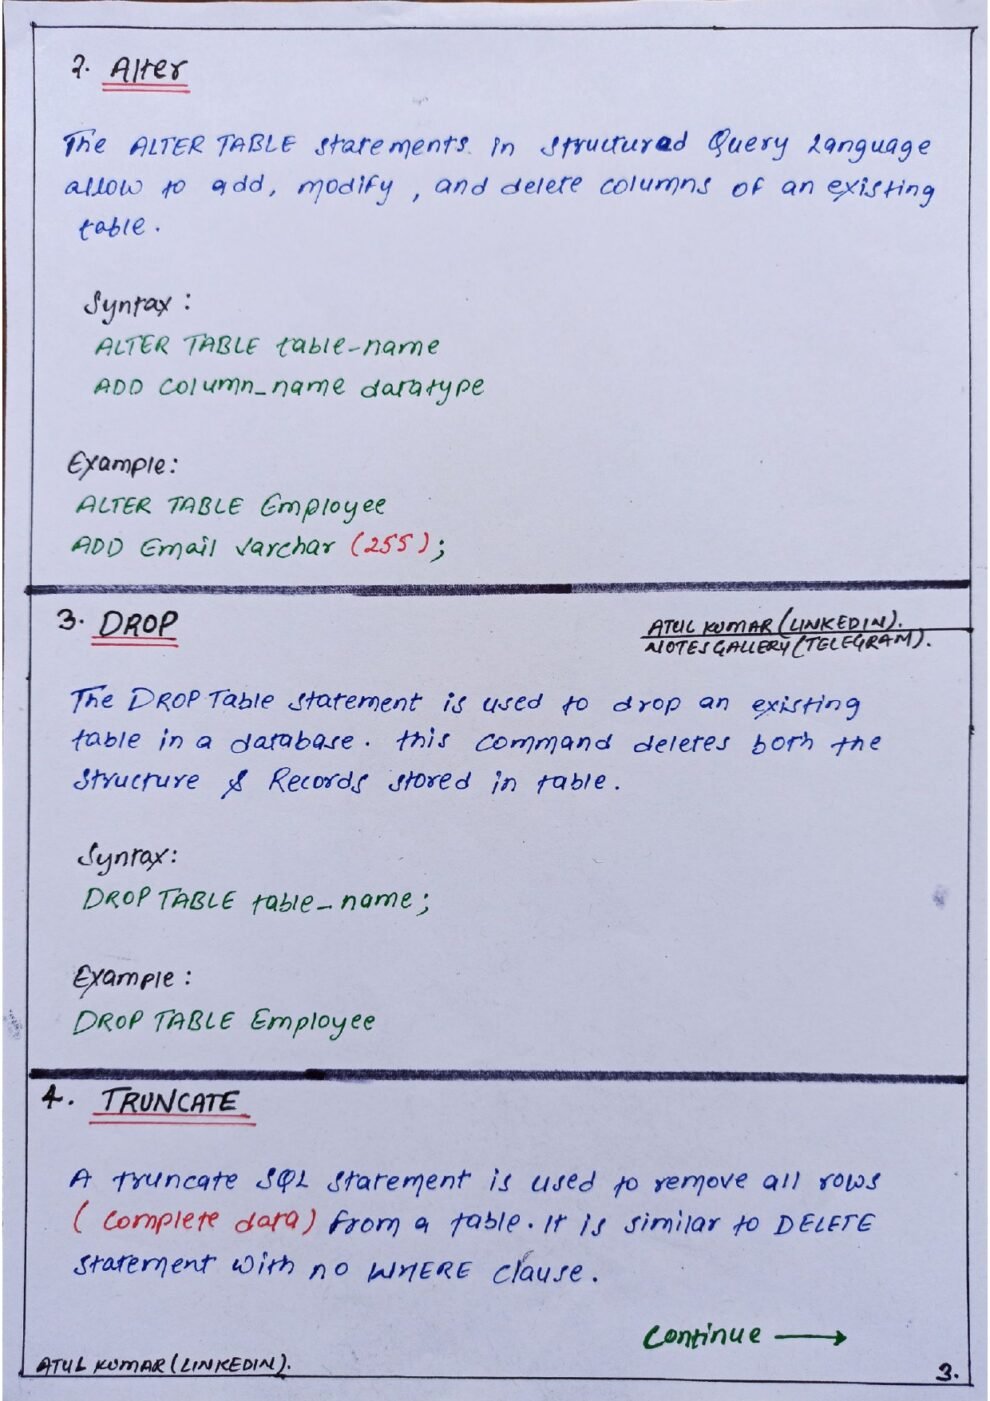 2. Alter
The ALTER TABLE statements in structured Query Language
allow to add, modify, and delete columns of an existing
table.
Syntax:
ALTER TABLE table-name
ADD column_name datatype
Example:
ALTER TABLE Employee
ADD Email varchar (255);
3. DROP
ATUL KUMAR (LINKEDIN).
NOTES GALLERY (TELEGRAM).
The DROP Table statement is used to drop an existing
table in a database. this command deletes both the
structure & Records stored in table.
Syntax:
DROP TABLE table_name;
Example:
DROP TABLE Employee
4. TRUNCATE
A truncate SQL statement is used to remove all rows
(complete data) from a table. It is similar to DELETE
statement with no WHERE clause.
Continue →
ATUL KUMAR (LINKEDIN).
3.